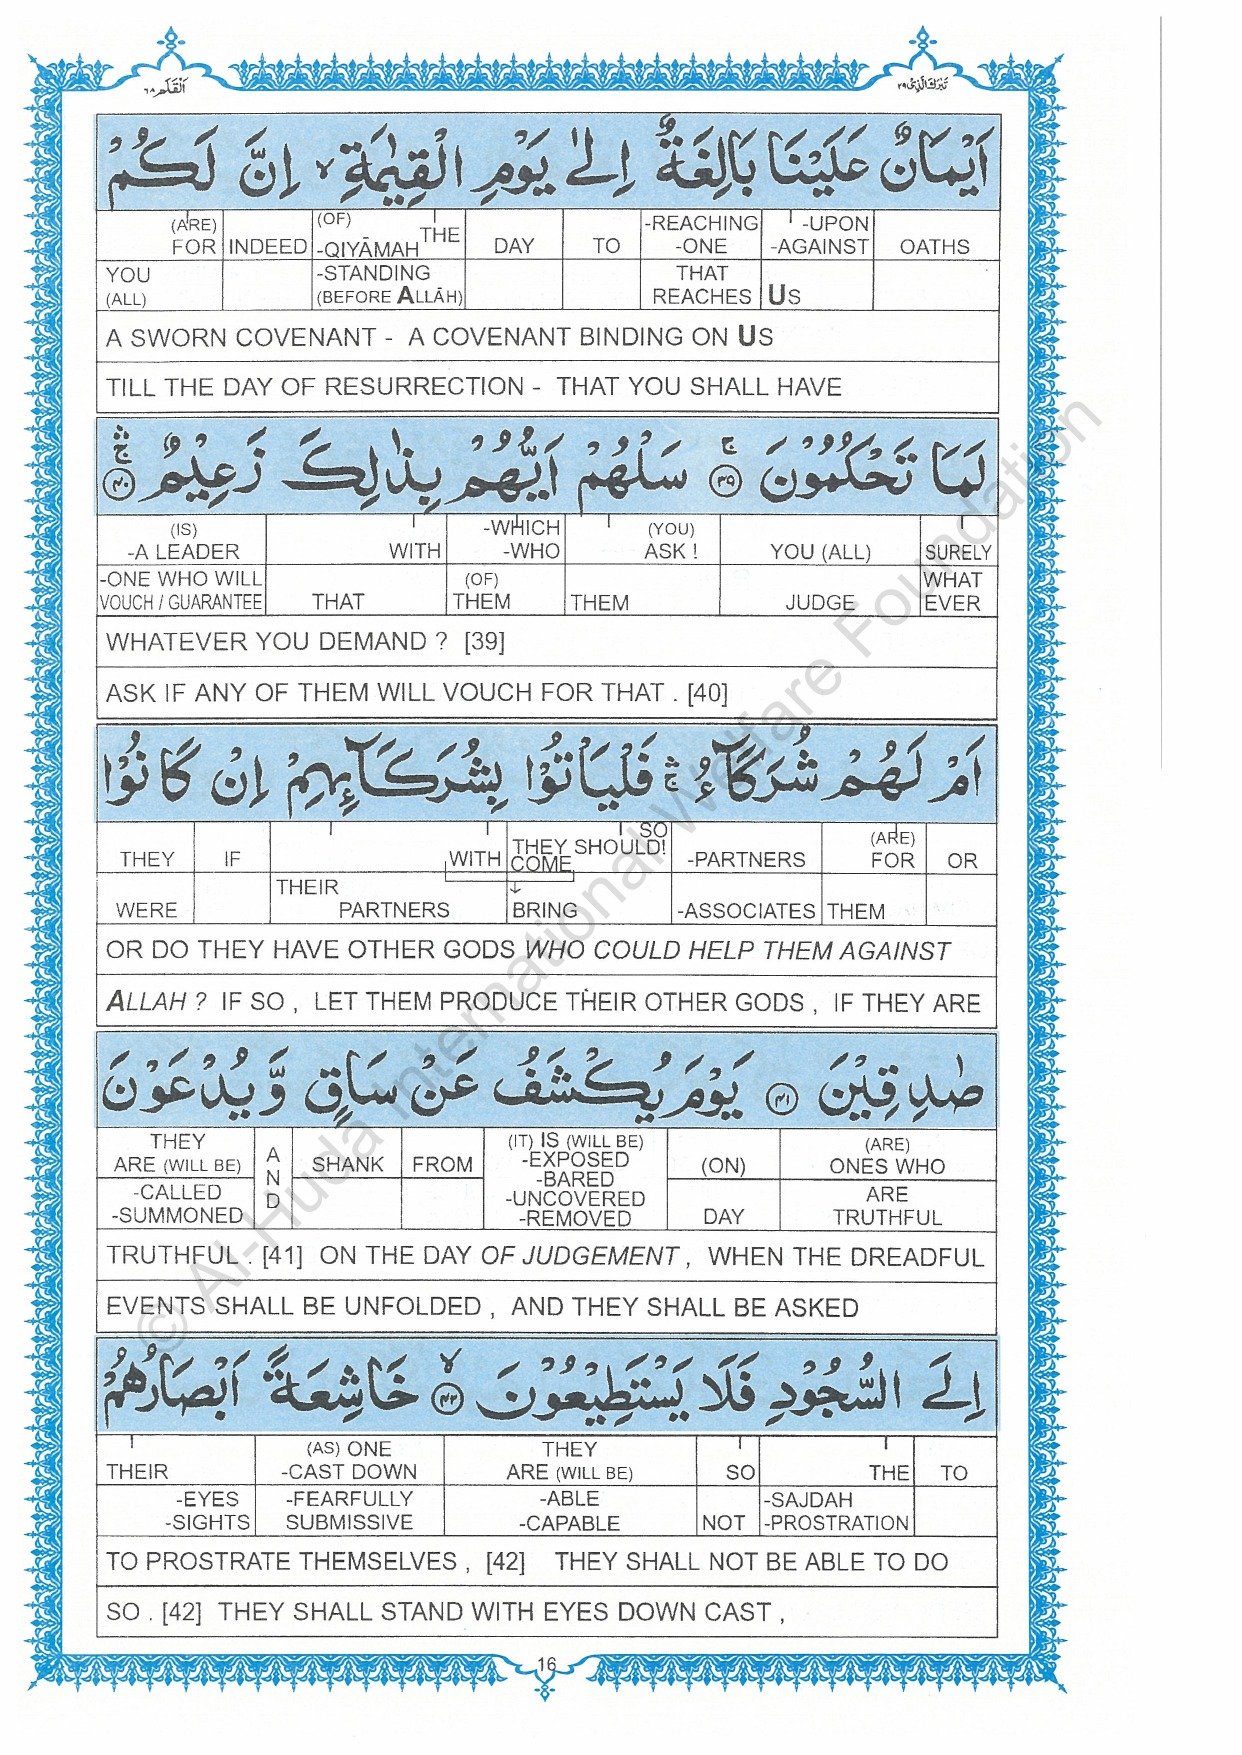 تَبٰرَكَ الَّذِىْ ٢٩
اَلْقَلَمِ ٦٨
اَيْمَانٌ عَلَيْنَا بَالِغَةٌ اِلٰى يَوْمِ الْقِيٰمَةِ ۙ اِنَّ لَكُمْ
(ARE) FOR INDEED (OF) -QIYĀMAH THE DAY TO -REACHING -ONE -UPON -AGAINST OATHS
YOU (ALL) -STANDING (BEFORE ALLĀH) THAT REACHES US
A SWORN COVENANT - A COVENANT BINDING ON US
TILL THE DAY OF RESURRECTION - THAT YOU SHALL HAVE
لَمَا تَحْكُمُوْنَ ۚ ﴿٣٩﴾ سَلْهُمْ اَيُّهُمْ بِذٰلِكَ زَعِيْمٌ ۛۚ ﴿٤٠﴾
(IS) -A LEADER WITH -WHICH -WHO (YOU) ASK ! YOU (ALL) SURELY
-ONE WHO WILL VOUCH / GUARANTEE THAT (OF) THEM THEM JUDGE WHAT EVER
WHATEVER YOU DEMAND ? [39]
ASK IF ANY OF THEM WILL VOUCH FOR THAT . [40]
اَمْ لَهُمْ شُرَكَآءُ ۛۚ فَلْيَاْتُوْا بِشُرَكَآئِهِمْ اِنْ كَانُوْا
THEY IF WITH SO THEY SHOULD! COME -PARTNERS (ARE) FOR OR
WERE THEIR PARTNERS ↓ BRING -ASSOCIATES THEM
OR DO THEY HAVE OTHER GODS WHO COULD HELP THEM AGAINST
ALLAH ? IF SO , LET THEM PRODUCE THEIR OTHER GODS , IF THEY ARE
صٰدِقِيْنَ ﴿٤١﴾ يَوْمَ يُكْشَفُ عَنْ سَاقٍ وَّ يُدْعَوْنَ
THEY ARE (WILL BE) AND SHANK FROM (IT) IS (WILL BE) -EXPOSED -BARED -UNCOVERED -REMOVED (ON) (ARE) ONES WHO
-CALLED -SUMMONED DAY ARE TRUTHFUL
TRUTHFUL . [41] ON THE DAY OF JUDGEMENT , WHEN THE DREADFUL
EVENTS SHALL BE UNFOLDED , AND THEY SHALL BE ASKED
اِلَى السُّجُوْدِ فَلَا يَسْتَطِيْعُوْنَ ۙ ﴿٤٢﴾ خَاشِعَةً اَبْصَارُهُمْ
THEIR (AS) ONE -CAST DOWN THEY ARE (WILL BE) SO THE TO
-EYES -SIGHTS -FEARFULLY SUBMISSIVE -ABLE -CAPABLE NOT -SAJDAH -PROSTRATION
TO PROSTRATE THEMSELVES , [42] THEY SHALL NOT BE ABLE TO DO
SO . [42] THEY SHALL STAND WITH EYES DOWN CAST ,
16
© Al-Huda International Welfare Foundation